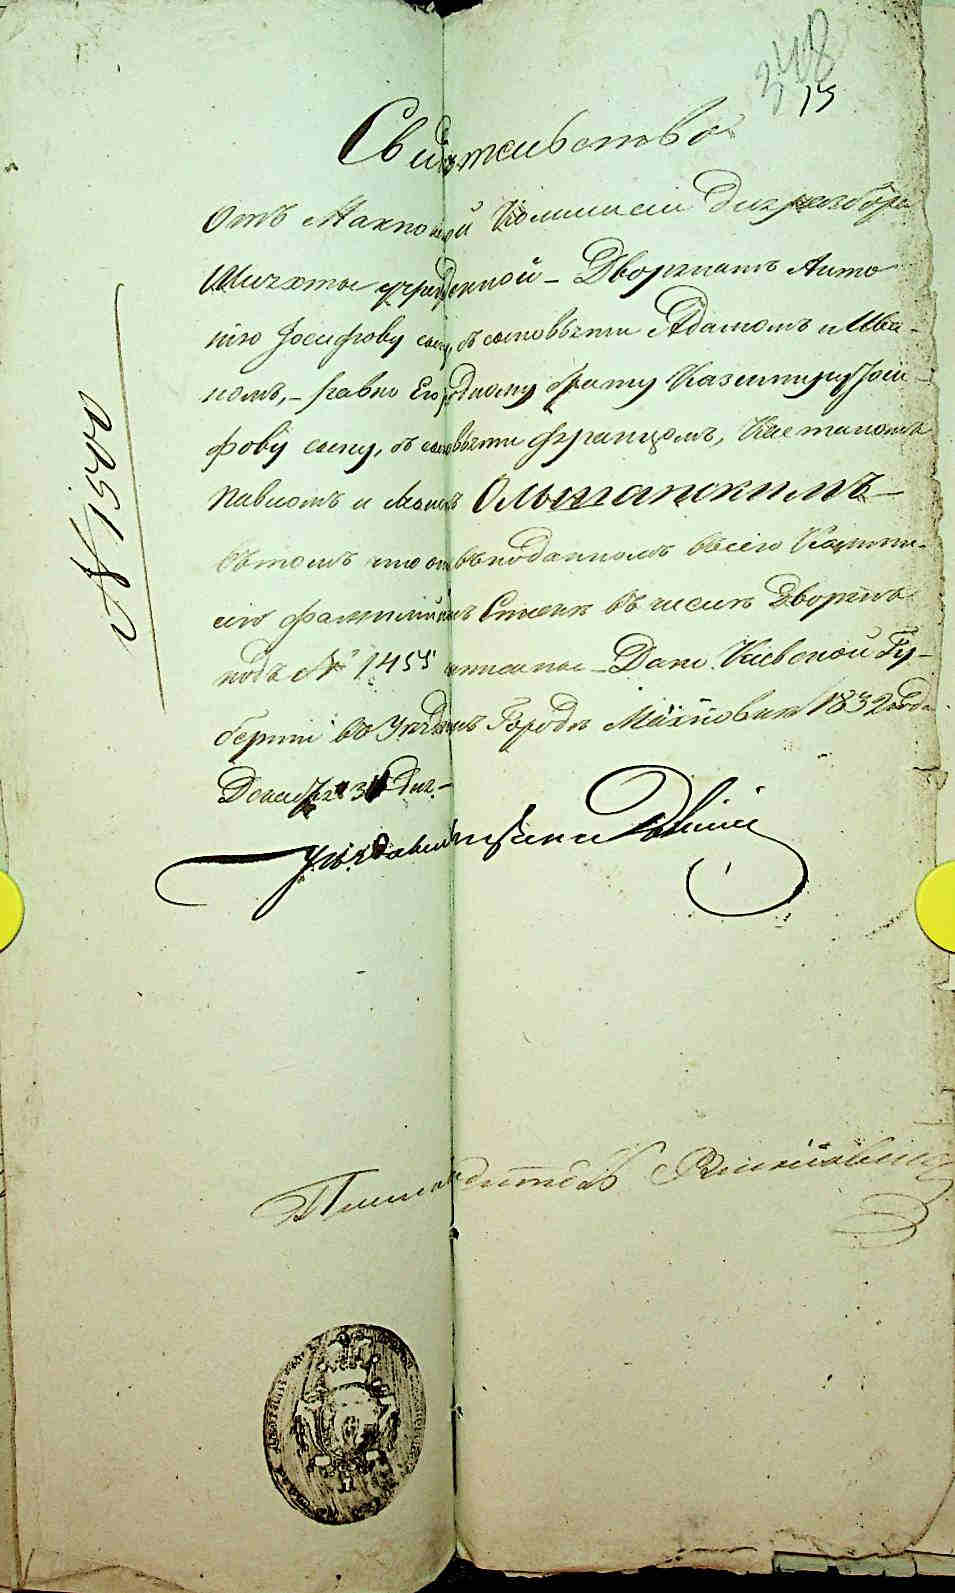 348
15
Свидѣтельство
Отъ Махновской Коммисіи для разбора
Шляхты учрежденной – Дворянамъ Анто
нію Іосифову сыну, съ сыновьями Адамомъ и Ива-
номъ, – равно Его родному брату Казимиру Іоси-
фову сыну, съ сыновьями Францомъ, Каетаномъ
Павломъ и Ольшанскимъ –
въ томъ что они въ поданномъ въ сію Комми-
сію фамилійномъ Спискѣ въ числѣ Дворянъ
подъ № 1455 записаны – Дано Кіевской Гу-
берніи въ Уѣздномъ Городѣ Махновкѣ 1832 года
Декабря 31 дня. –
№ 1500